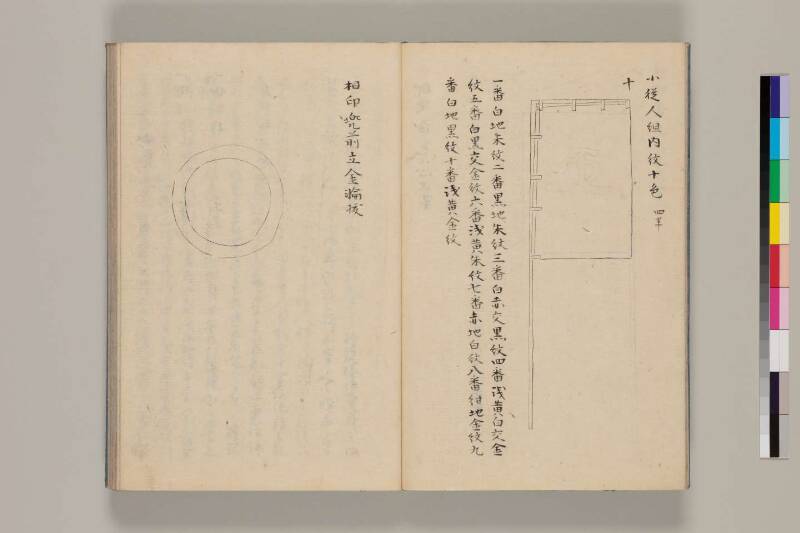 小従人組内紋十色
十
一番白地朱紋二番黒地朱紋三番白赤交黒紋四番浅黄白交金
紋五番白黒交金紋六番浅黄朱紋七番赤地白紋八番紺地金紋九
番白地黒紋十番浅黄金紋
相印兜前立金輪抜